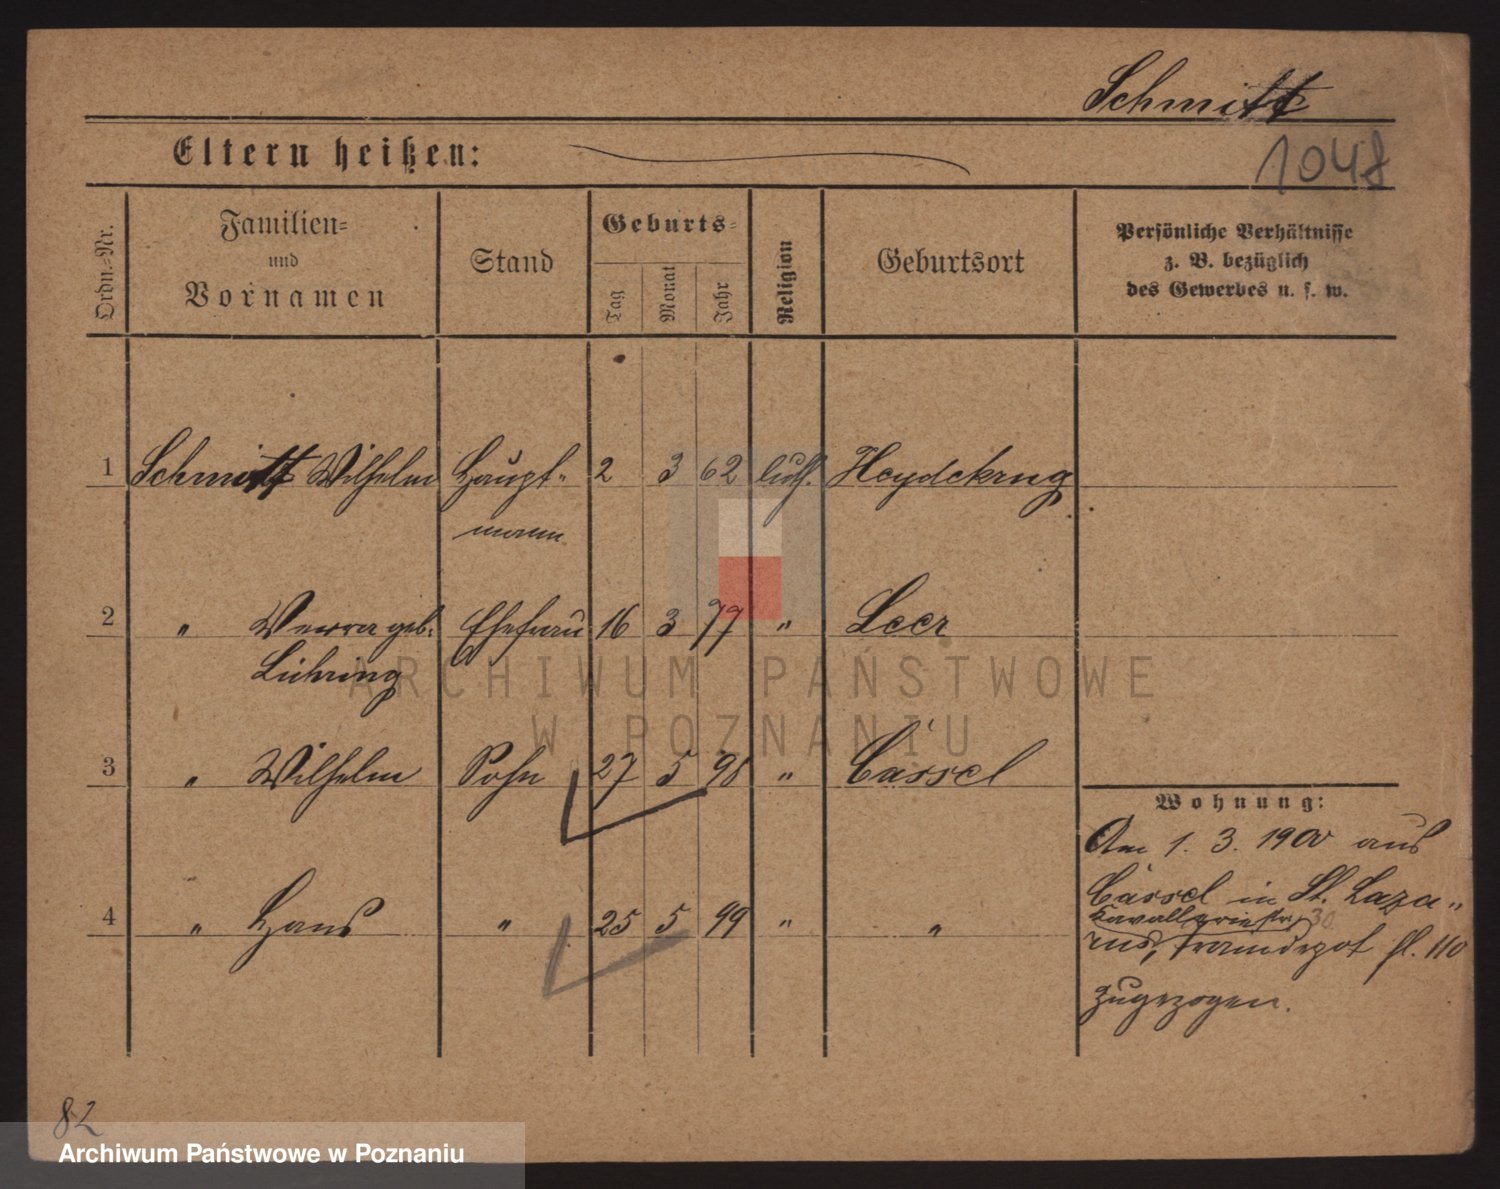 Schmitt
Eltern heißen:
1048
Ordn.-Nr.
Familien-
und
Vornamen
Stand
Geburts-
Tag
Monat
Jahr
Religion
Geburtsort
Persönliche Verhältnisse
z. B. bezüglich
des Gewerbes u. s. w.
1 Schmitt Wilhelm Haupt- 2 3 62 luth. Heydekrug
mann
2 " Werra geb. Ehefrau 16 3 77 " Leer
Lühring
3 " Wilhelm Sohn 27 5 98 " Cassel
Wohnung:
Am 1. 3. 1900 aus
Cassel in St. Laza-
Kavalleriestr. 30
4 " Hans " 25 5 99 " "
rus, Traindepot fl. 110
zugezogen.
82
ARCHIWUM PAŃSTWOWE
W POZNANIU
Archiwum Państwowe w Poznaniu